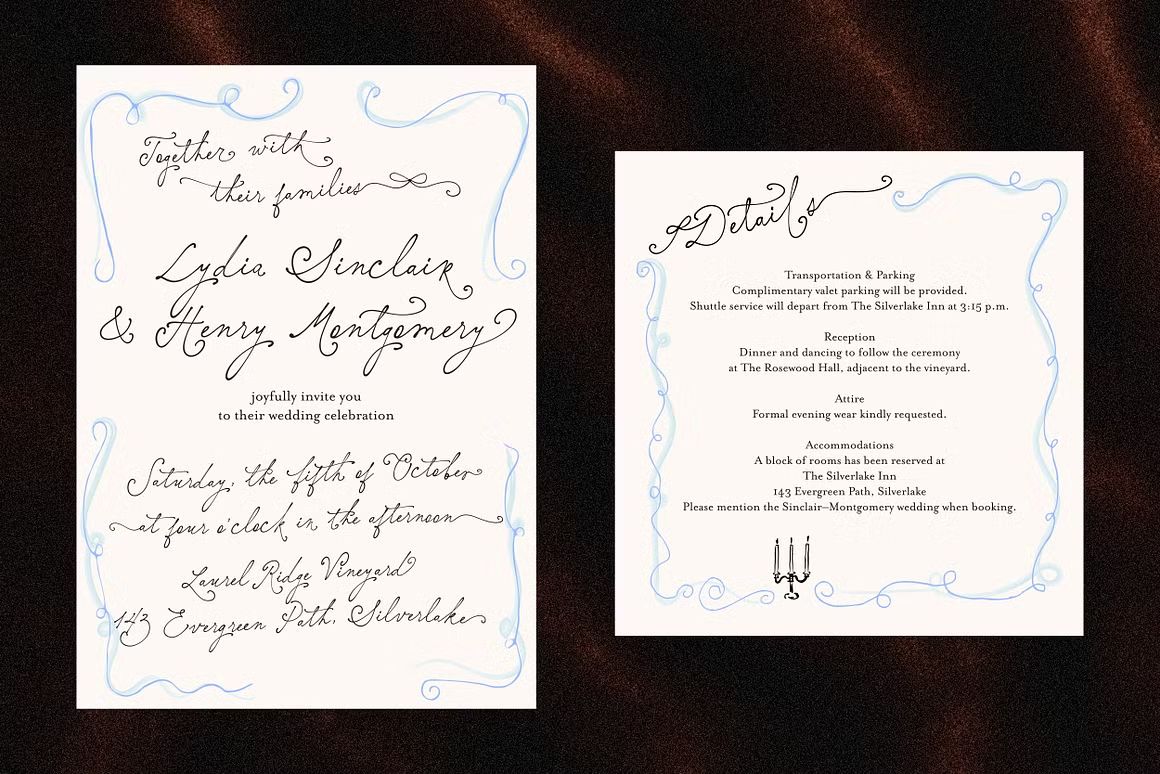 Together with
their families
Lydia Sinclair
& Henry Montgomery
joyfully invite you
to their wedding celebration
Saturday, the fifth of October
at four o'clock in the afternoon
Laurel Ridge Vineyard
143 Evergreen Path, Silverlake
Details
Transportation & Parking
Complimentary valet parking will be provided.
Shuttle service will depart from The Silverlake Inn at 3:15 p.m.
Reception
Dinner and dancing to follow the ceremony
at The Rosewood Hall, adjacent to the vineyard.
Attire
Formal evening wear kindly requested.
Accommodations
A block of rooms has been reserved at
The Silverlake Inn
143 Evergreen Path, Silverlake
Please mention the Sinclair—Montgomery wedding when booking.